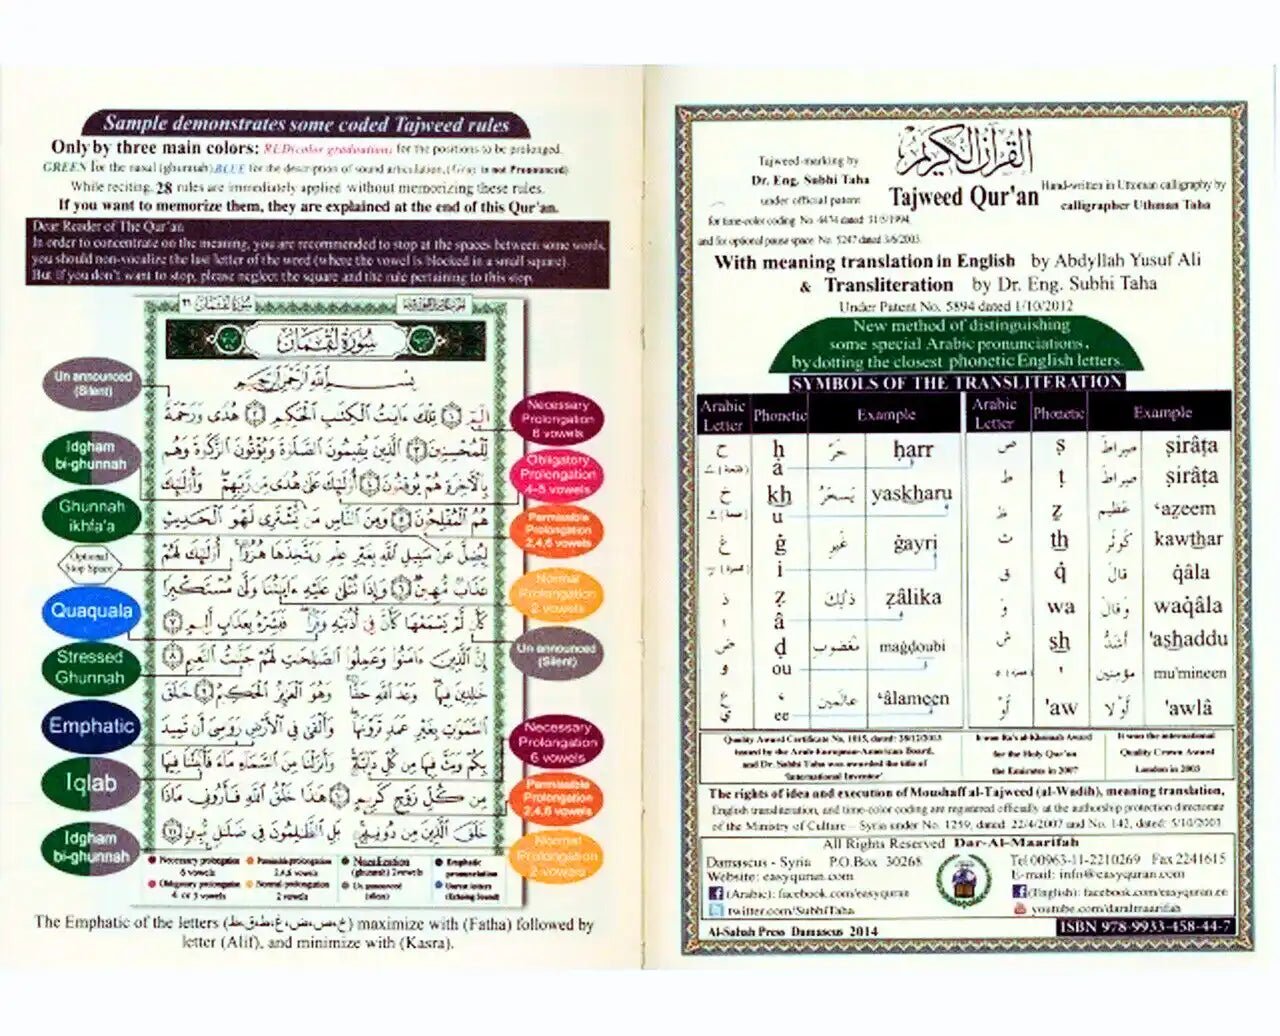 Sample demonstrates some coded Tajweed rules
Only by three main colors: RED(color graduations for the positions to be prolonged.
GREEN for the nasal (ghunnah) BLUE for the description of sound articulation, (Gray is not Pronounced)
While reciting, 28 rules are immediately applied without memorizing these rules.
If you want to memorize them, they are explained at the end of this Qur'an.
Dear Reader of The Qur'an
In order to concentrate on the meaning, you are recommended to stop at the spaces between some words,
you should non-vocalize the last letter of the word (where the vowel is blocked in a small square).
But if you don't want to stop, please neglect the square and the rule pertaining to this stop.
سُورَةُ لُقْمَان
بِسْمِ اللَّهِ الرَّحْمَٰنِ الرَّحِيمِ
الٓمٓ ١ تِلْكَ ءَايَٰتُ ٱلْكِتَٰبِ ٱلْحَكِيمِ ٢ هُدًى وَرَحْمَةً
لِّلْمُحْسِنِينَ ٣ ٱلَّذِينَ يُقِيمُونَ ٱلصَّلَوٰةَ وَيُؤْتُونَ ٱلزَّكَوٰةَ وَهُم
بِٱلْءَاخِرَةِ هُمْ يُوقِنُونَ ٤ أُو۟لَٰٓئِكَ عَلَىٰ هُدًى مِّن رَّبِّهِمْ وَأُو۟لَٰٓئِكَ
هُمُ ٱلْمُفْلِحُونَ ٥ وَمِنَ ٱلنَّاسِ مَن يَشْتَرِى لَهْوَ ٱلْحَدِيثِ
لِيُضِلَّ عَن سَبِيلِ ٱللَّهِ بِغَيْرِ عِلْمٍ وَيَتَّخِذَهَا هُزُوًا أُو۟لَٰٓئِكَ لَهُمْ
عَذَابٌ مُّهِينٌ ٦ وَإِذَا تُتْلَىٰ عَلَيْهِ ءَايَٰتُنَا وَلَّىٰ مُسْتَكْبِرًا
كَأَن لَّمْ يَسْمَعْهَا كَأَنَّ فِىٓ أُذُنَيْهِ وَقْرًا فَبَشِّرْهُ بِعَذَابٍ أَلِيمٍ ٧
إِنَّ ٱلَّذِينَ ءَامَنُوا۟ وَعَمِلُوا۟ ٱلصَّٰلِحَٰتِ لَهُمْ جَنَّٰتُ ٱلنَّعِيمِ ٨
خَٰلِدِينَ فِيهَا وَعْدَ ٱللَّهِ حَقًّا وَهُوَ ٱلْعَزِيزُ ٱلْحَكِيمُ ٩ خَلَقَ
ٱلسَّمَٰوَٰتِ بِغَيْرِ عَمَدٍ تَرَوْنَهَا وَأَلْقَىٰ فِى ٱلْأَرْضِ رَوَٰسِىَ أَن تَمِيدَ
بِكُمْ وَبَثَّ فِيهَا مِن كُلِّ دَآبَّةٍ وَأَنزَلْنَا مِنَ ٱلسَّمَآءِ مَآءً فَأَنۢبَتْنَا فِيهَا
مِن كُلِّ زَوْجٍ كَرِيمٍ ١٠ هَٰذَا خَلْقُ ٱللَّهِ فَأَرُونِى مَاذَا
خَلَقَ ٱلَّذِينَ مِن دُونِهِ بَلِ ٱلظَّٰلِمُونَ فِى ضَلَٰلٍ مُّبِينٍ ١١
Un announced
(Silent)
Idgham
bi-ghunnah
Ghunnah
ikhfa'a
Optional
Stop Space
Quaquala
Stressed
Ghunnah
Emphatic
Iqlab
Idgham
bi-ghunnah
Necessary
Prolongation
6 vowels
Obligatory
Prolongation
4-5 vowels
Permissible
Prolongation
2,4,6 vowels
Normal
Prolongation
2 vowels
Un announced
(Silent)
Necessary
Prolongation
6 vowels
Permissible
Prolongation
2,4,6 vowels
Normal
Prolongation
2 vowels
Necessary prolongation Permissible prolongation Nazalization Emphatic
6 vowels 2,4,6 vowels (ghunnah) 2vowels pronunciation
Obligatory prolongation Normal prolongation Un announced
4 or 5 vowels 2 vowels (silent) (Echoing Sound)
The Emphatic of the letters maximize with (Fatha) followed by
letter (Alif), and minimize with (Kasra).
القرآن الكريم
Tajweed Qur'an
Tajweed-marking by
Dr. Eng. Subhi Taha
under official patent
for time-color coding No. 4474 dated 31/5/1994
and for optional pause space No. 5247 dated 3/6/2003
Hand-written in Uttoman calligraphy by
calligrapher Uthman Taha
With meaning translation in English by Abdyllah Yusuf Ali
& Transliteration by Dr. Eng. Subhi Taha
Under Patent No. 5894 dated 1/10/2012
New method of distinguishing
some special Arabic pronunciations,
by dotting the closest phonetic English letters.
SYMBOLS OF THE TRANSLITERATION
Arabic Letter Phonetic Example Arabic Letter Phonetic Example
ح ḥ حَرّ ḥarr ص ṣ صِراط ṣirâṭa
a ط ṭ صِراط ṣirâṭa
خ kh يَسخَرُ yaskharu ظ ẓ عَظيم ‘aẓeem
u ث th كَوثَر kawthar
غ ġ غَير ġayri ق q̇ قالَ q̇âla
i
ذ ẓ ذَلِكَ ẓâlika وَ wa وَقالَ waq̇âla
â
ض ḍ مَغضوب maġḍoubi ش sh أَشَدُّ 'ashaddu
و ou ' مؤمنين mu'mineen
ع ‘ عالَمين ‘âlameen أَوْ 'aw أَوْلا 'awlâ
ي ee
Quality Award Certificate No. 1015, dated: 28/12/2003
issued by the Arab-European-American Board,
and Dr. Subhi Taha was awarded the title of
'International Inventor'
It won Ra's al-Khemah Award
for the Holy Qur'an
the Emirates in 2007
It won the international
Quality Crown Award
London in 2003
The rights of idea and execution of Moushaff al-Tajweed (al-Wadih), meaning translation,
English transliteration, and time-color coding are registered officially at the authorship protection directorate
of the Ministry of Culture – Syria under No. 1259, dated: 22/4/2007 and No. 142, dated: 5/10/2001
All Rights Reserved Dar-Al-Maarifah
Damascus - Syria P.O.Box 30268
Website: easyquran.com
(Arabic): facebook.com/easyquran
twitter.com/SubhiTaha
Tel 00963-11-2210269 Fax 2241615
E-mail: info@easyquran.com
(English): facebook.com/easyquran.en
youtube.com/daralmaarifah
Al-Sabah Press Damascus 2014
ISBN 978-9933-458-44-7